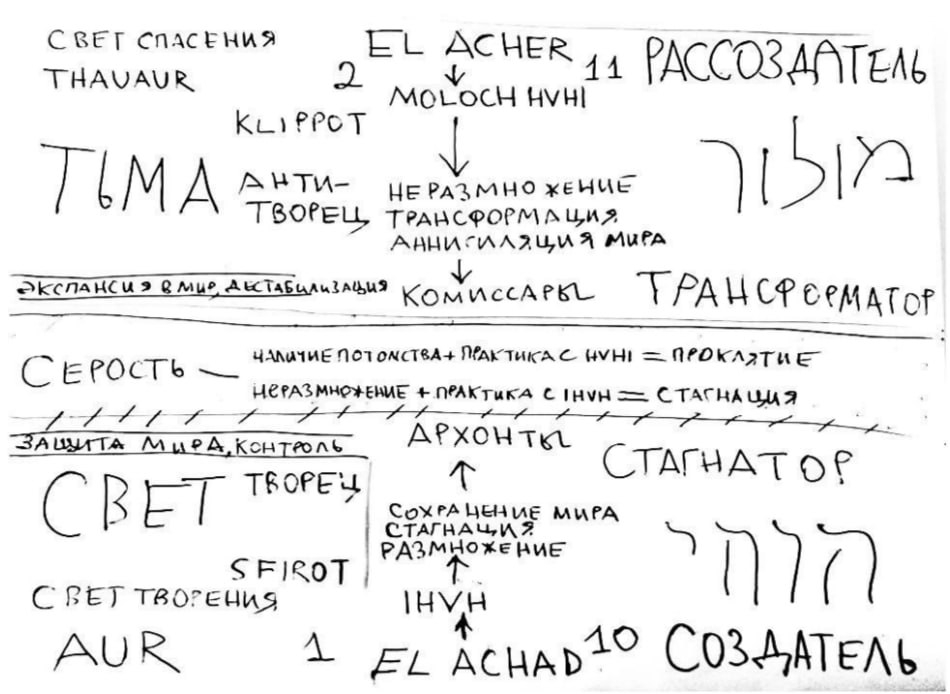 СВЕТ СПАСЕНИЯ
THAUAUR
2
EL ACHER
11
РАССОЗДАТЕЛЬ
MOLOCH HVHI
KLIPPOT
ТЬМА
АНТИ-
ТВОРЕЦ
НЕРАЗМНОЖЕНИЕ
ТРАНСФОРМАЦИЯ
АННИГИЛЯЦИЯ МИРА
מולוך
ЭКСПАНСИЯ В МИР, ДЕСТАБИЛИЗАЦИЯ
КОМИССАРЫ
ТРАНСФОРМАТОР
СЕРОСТЬ —
НАЛИЧИЕ ПОТОМСТВА + ПРАКТИКА С HVHI = ПРОКЛЯТИЕ
НЕРАЗМНОЖЕНИЕ + ПРАКТИКА С IHVH = СТАГНАЦИЯ
ЗАЩИТА МИРА, КОНТРОЛЬ
АРХОНТЫ
СТАГНАТОР
СВЕТ
ТВОРЕЦ
СОХРАНЕНИЕ МИРА
СТАГНАЦИЯ
РАЗМНОЖЕНИЕ
הוהי
SFIROT
СВЕТ ТВОРЕНИЯ
IHVH
AUR
1
EL ACHAD
10
СОЗДАТЕЛЬ